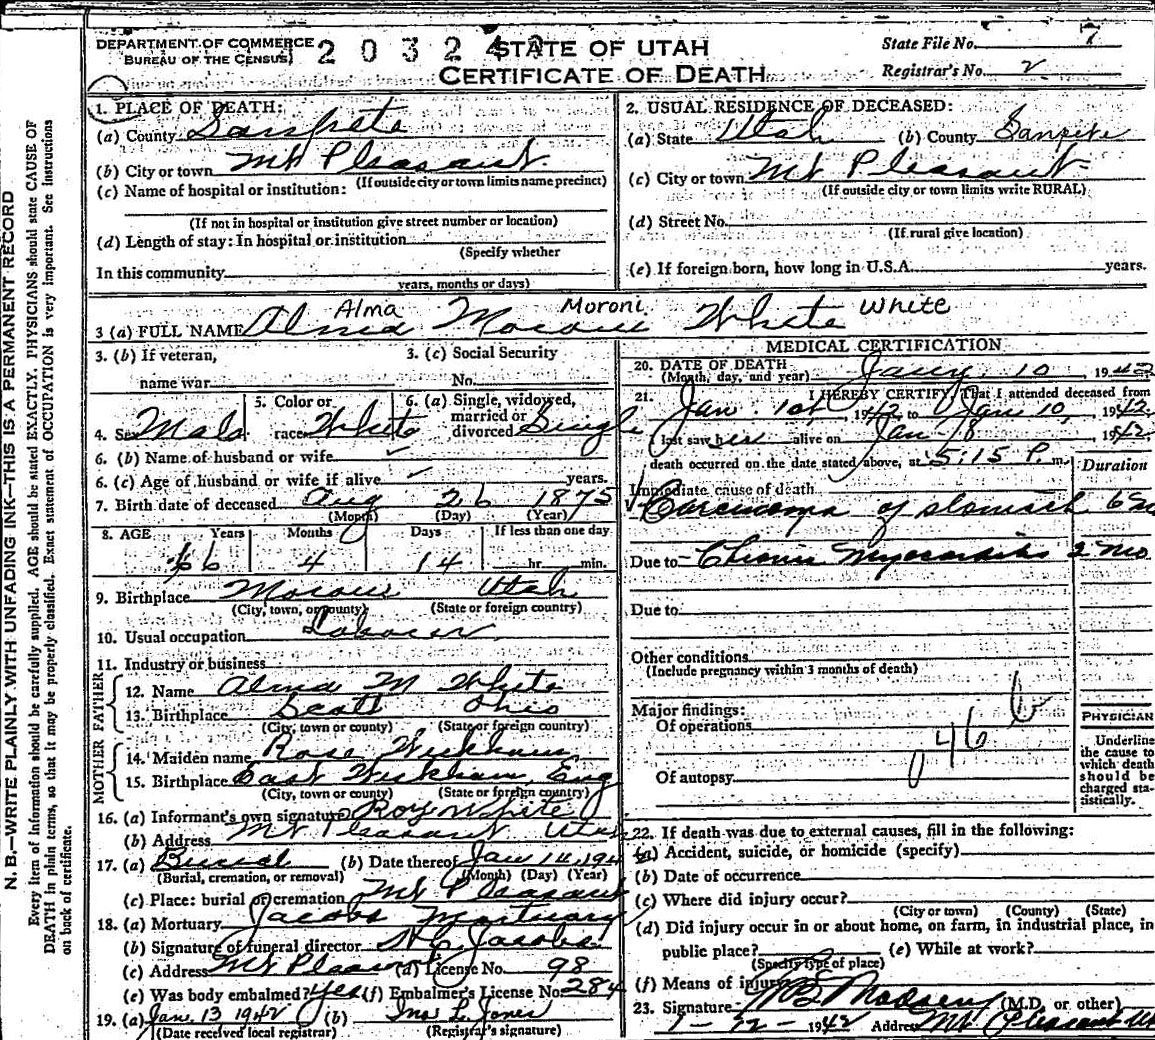 DEPARTMENT OF COMMERCE
BUREAU OF THE CENSUS
2 0 3 2 4
STATE OF UTAH
CERTIFICATE OF DEATH
State File No. 7
Registrar's No. 2
N. B.—WRITE PLAINLY WITH UNFADING INK—THIS IS A PERMANENT RECORD
Every item of information should be carefully supplied. AGE should be stated EXACTLY. PHYSICIANS should state CAUSE OF
DEATH in plain terms, so that it may be properly classified. Exact statement of OCCUPATION is very important. See instructions
on back of certificate.
1. PLACE OF DEATH:
(a) County Sanpete
(b) City or town Mt Pleasant
(If outside city or town limits name precinct)
(c) Name of hospital or institution:
(If not in hospital or institution give street number or location)
(d) Length of stay: In hospital or institution
(Specify whether
In this community
years, months or days)
2. USUAL RESIDENCE OF DECEASED:
(a) State Utah (b) County Sanpete
(c) City or town Mt Pleasant
(If outside city or town limits write RURAL)
(d) Street No.
(If rural give location)
(e) If foreign born, how long in U.S.A. years.
Alma Moroni White
3 (a) FULL NAME Alma Moroni White
3. (b) If veteran,
name war
3. (c) Social Security
No.
4. Sex Male
5. Color or
race White
6. (a) Single, widowed,
married or
divorced Single
6. (b) Name of husband or wife
6. (c) Age of husband or wife if alive years.
7. Birth date of deceased Aug 26 1875
(Month) (Day) (Year)
8. AGE Years Months Days If less than one day
66 4 14 hr. min.
9. Birthplace Moroni Utah
(City, town, or county) (State or foreign country)
10. Usual occupation Laborer
11. Industry or business
FATHER
12. Name Alma M White
13. Birthplace Scott Ohio
(City, town or county) (State or foreign country)
MOTHER
14. Maiden name Rose Wickham
15. Birthplace East Wickham, Eng
(City, town or county) (State or foreign country)
16. (a) Informant's own signature Roy White
(b) Address Mt Pleasant Utah
17. (a) Burial (b) Date thereof Jan 14, 194
(Burial, cremation, or removal) (Month) (Day) (Year)
(c) Place: burial or cremation Mt Pleasant
18. (a) Mortuary Jacobs Mortuary
(b) Signature of funeral director Jacobs
(c) Address Mt Pleasant (d) License No. 98
(e) Was body embalmed? Yes (f) Embalmer's License No. 284
19. (a) Jan. 13 1942 (b) L. Jones
(Date received local registrar) (Registrar's signature)
MEDICAL CERTIFICATION
20. DATE OF DEATH
(Month, day, and year) Jany 10 1942
21. I HEREBY CERTIFY, That I attended deceased from
Jan. 1st 1942 to Jan 10, 1942
I last saw him alive on Jan 8 1942
death occurred on the date stated above, at 5:15 P. m.
Duration
Immediate cause of death
Carcinoma of stomach 6
Due to Chronic Myocarditis 2 mo
Due to
Other conditions
(Include pregnancy within 3 months of death)
Major findings:
Of operations
046
Of autopsy
PHYSICIAN
Underline
the cause to
which death
should be
charged sta-
tistically.
22. If death was due to external causes, fill in the following:
(a) Accident, suicide, or homicide (specify)
(b) Date of occurrence
(c) Where did injury occur?
(City or town) (County) (State)
(d) Did injury occur in or about home, on farm, in industrial place, in
public place? (e) While at work?
(Specify type of place)
(f) Means of injury
23. Signature Madsen (M.D. or other)
1-12-1942 Address Mt Pleasant Ut